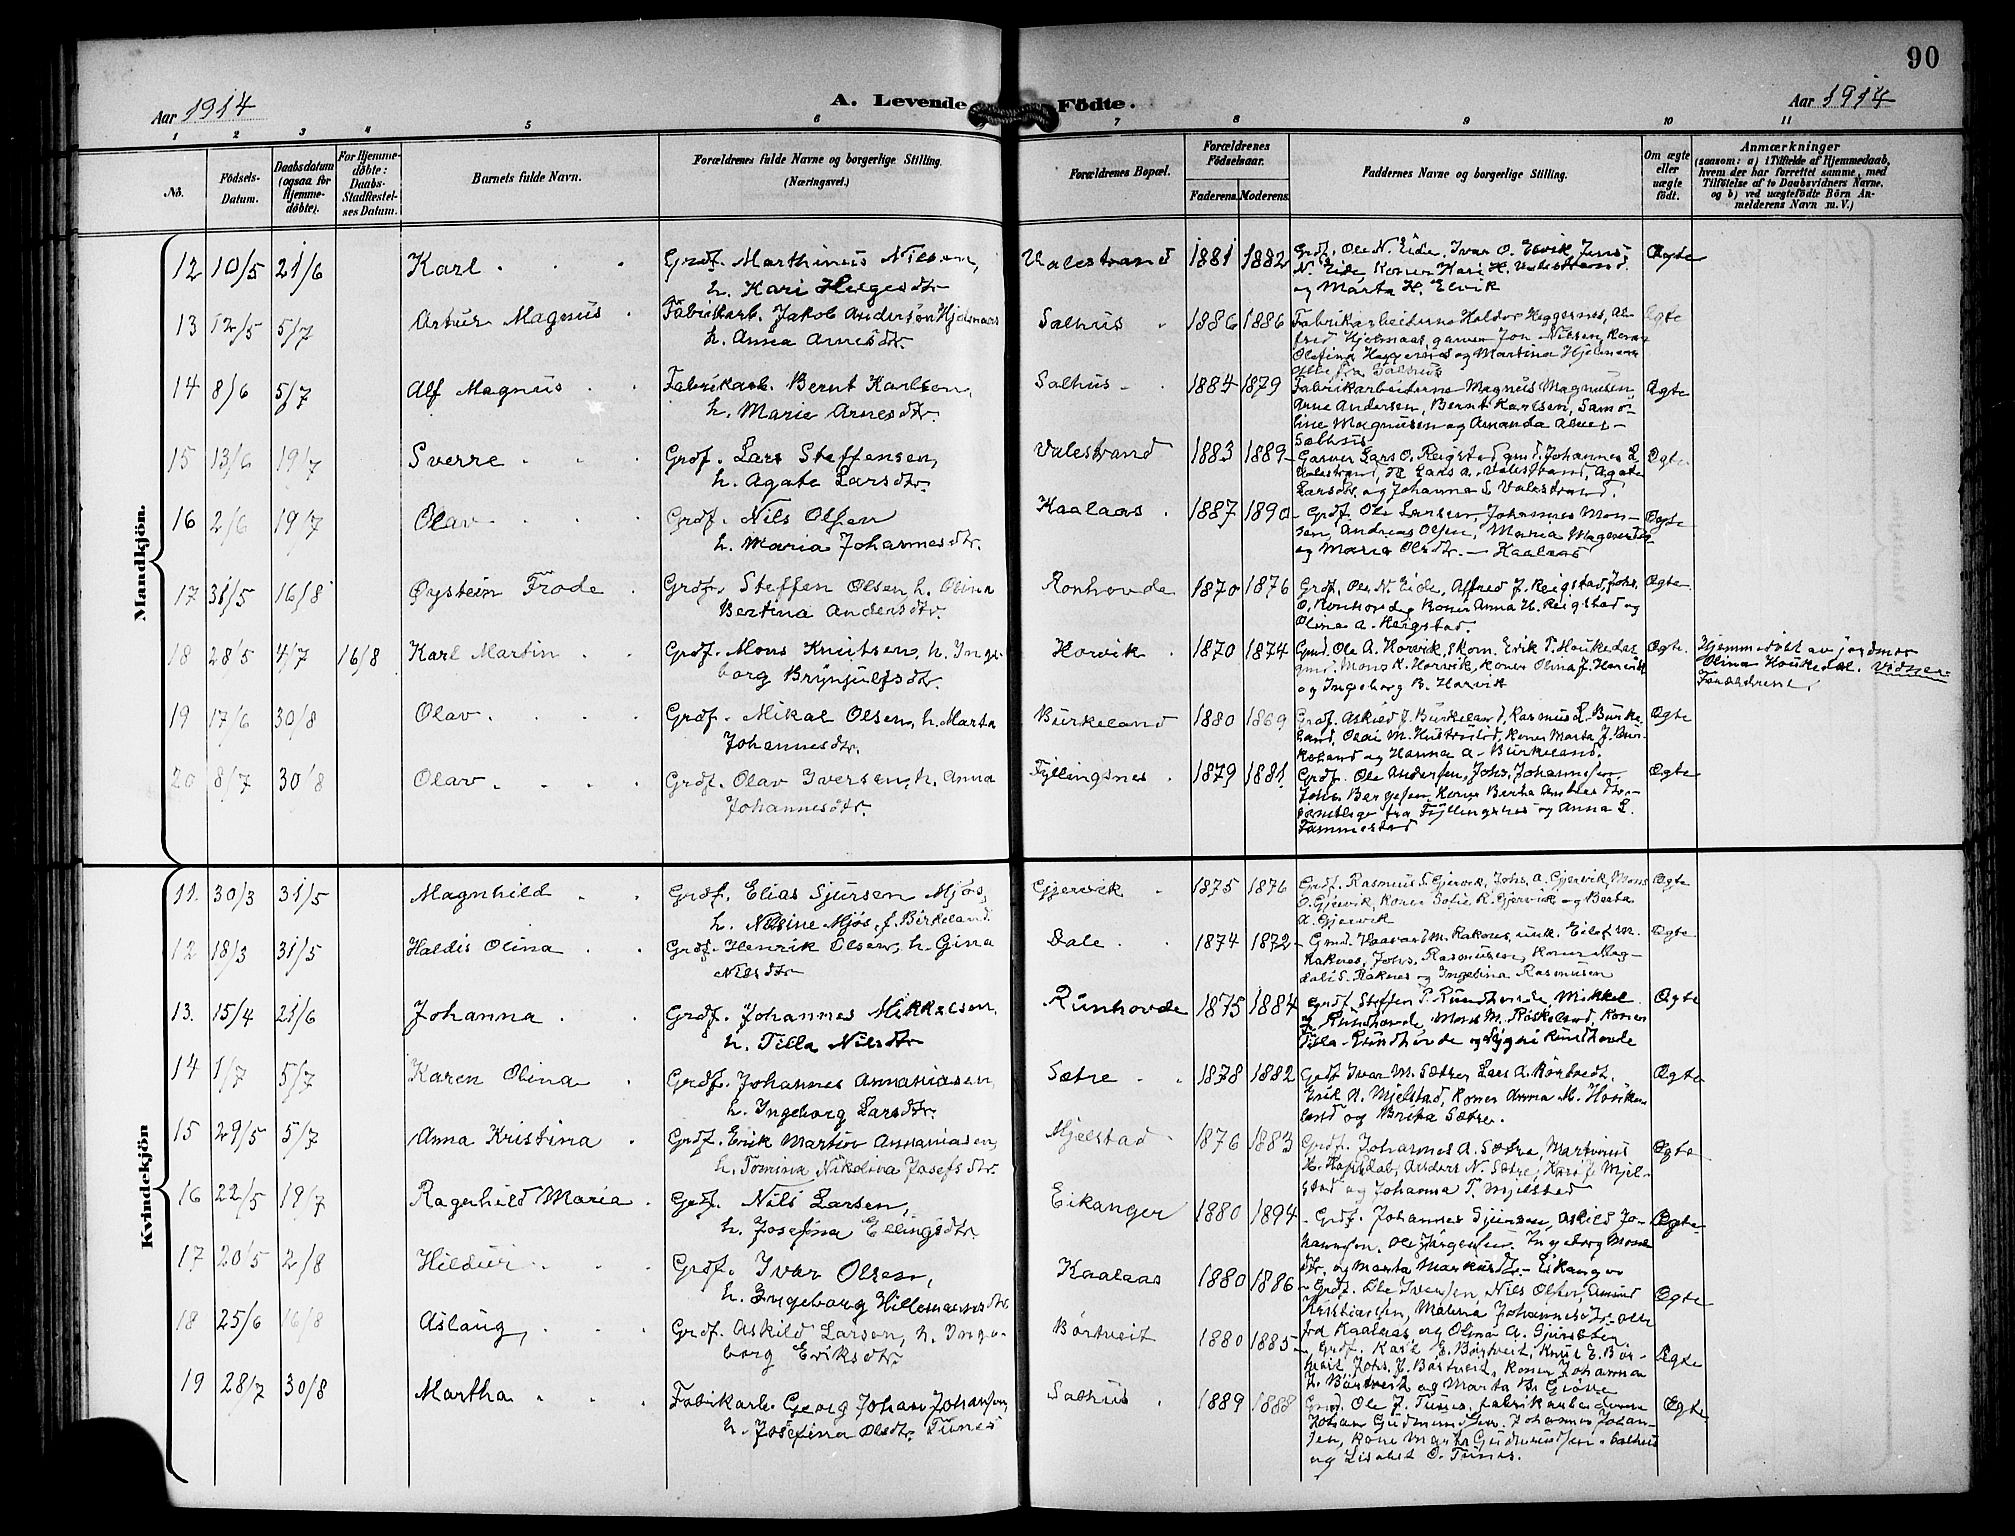 90
A. Levende Födte.
Aar 1914
Aar 1914
1 2 3 4 5 6 7 8 9 10 11
No.
Födsels-Datum.
Daabsdatum (ogsaa for Hjemme-döbte).
For Hjemme-döbte: Daabs-Stadfæstel-ses Datum.
Barnets fulde Navn.
Forældrenes fulde Navne og borgerlige Stilling. (Næringsvei.)
Forældrenes Bopæl.
Forældrenes Födselsaar.
Faderens. Moderens.
Faddernes Navne og borgerlige Stilling.
Om ægte eller uægte födt.
Anmærkninger
(saasom: a) i Tilfælde af Hjemmedaab, hvem der har forrettet samme, med Tilföielse af to Daabsvidners Navne, og b) ved uægtefödte Börn An-melderens Navn m. V.)
Mandkjön.
12 10/5 21/6 Karl Grdf. Marthinus Nilsen, Valestrand 1881 1882 Grdf. Ole N. Eide, Ivar O. Elvik, Jens Ægte
h. Kari Helgesdtr N. Eide, Koner Kari H. Valestrand
og Marta H. Elvik
13 12/5 5/7 Artur Magnus Fabrikarb. Jakob Anderson Hjelmaas Salhus 1886 1886 Fabrikarbeiderne Haldor Heggernes, Al- Ægte
h. Anna Arnesdtr. fred Hjelmaas, garver Jon Nilsen, Koner
Olefina Heggernes og Martina Hjelmaas
alle fra Salhus
14 8/6 5/7 Alf Magnus Fabrikarb. Bernt Karlsen, Salhus 1884 1879 Fabrikarbeiderne Magnus Magnusen, Ægte
h. Marie Arnesdtr. Arne Andersen, Bernt Karlsen,
Magnusen og Amanda
Salhus
15 13/6 19/7 Sverre Grdf. Lars Steffensen, Valestrand 1883 1889 Garver Lars O. Reigstad, gmd. Johannes L. Ægte
h. Agate Larsdtr. Valestrand, Lars A. Valestrand, Agate
Larsdtr. og Johanna L. Valestrand.
16 2/6 19/7 Olav Grdf. Nils Olsen Kaalaas 1887 1890 Grdf. Ole Larsen, Johannes Mon- Ægte
h. Maria Johannesdtr. sen, Andreas Olsen, Maria
og Maria Olsdtr. – Kaalaas
17 31/5 16/8 Øystein Frode Grdf. Steffen Olsen, h. Olina Ronhovde 1870 1876 Grdf. Ole N. Eide, Alfred J. Reigstad, Johs. Ægte
Bertina Andersdtr. O. Ronhovde, Koner Anna H. Reigstad og
Olina A. Reigstad.
18 28/5 4/7 16/8 Karl Martin Grdf. Mons Knutsen, h. Inge- Horvik 1870 1874 Gmd. Ole A. Horvik, Skom. Erik T. Houkedal Ægte Hjemmedøbt av jordmor
borg Brynjulfsdtr. gmd. Mons K. Horvik, koner Olina J. Horvik Olina Houkedal. Vidner
og Ingeborg B. Horvik Forældrene.
19 17/6 30/8 Olav Grdf. Mikal Olsen, h. Marta Burkeland 1880 1869 Grdf. Askild J. Burkeland, Rasmus L. Burke- Ægte
Johannesdtr. land, Olai M. Koner Marta J. Bur-
keland og Hanna A. Burkeland.
20 8/7 30/8 Olav Grdf. Olav Iversen, h. Anna Fyllingsnes 1879 1881 Grdf. Ole Andersen, Johs. Johannesen, Ægte
Johannesdtr. Johs. Børgesen, Koner Berta
samtlige fra Fyllingsnes og Anna L.
Tammestad
Kvindekjön
11. 30/3 31/5 Magnhild Grdf. Elias Sjursen Mjøs, Gjervik 1875 1876 Grdf. Rasmus S. Gjervik, Johs. A. Gjervik, Mons Ægte
h. Nilsine Mjøs, f. Birkeland O. Gjervik, Koner Sofie R. Gjervik og Berta
A. Gjervik
12 18/3 31/5 Haldis Olina Grdf. Henrik Olsen, h. Gina Dale 1874 1872 Gmd. Haavard M. Raknes, unk. Eilef M. Ægte
Nilsdtr Raknes, Johs. Rasmussen, Koner Mag-
dali S. Raknes og Ingelina Rasmusen
13. 15/4 21/6 Johanna Grdf. Johannes Mikkelsen, Runhovde 1875 1884 Grdf. Steffen P. Rundhovde, Mikkel Ægte
h. Tilla Nilsdtr Rundhovde, Mons M. Røskeland, Koner
Tilla Rundhovde og Sygni Rundhovde
14 1/7 5/7 Karen Olina Grdf. Johannes Annaniasen, Sætre 1878 1882 Grdf Ivar M. Sætre, Lars A. Børtvedt, Ægte
h. Ingeborg Larsdtr. Erik A. Mjelstad, Koner Anna M. Houke-
land og Brita Sætre.
15 29/5 5/7 Anna Kristina Grdf. Erik Martin Annaniasen, Mjelstad 1876 1883 Grdf. Johannes A. Sætre, Martinus Ægte
h. Tomina Nikolina Josefsdtr. H. Hopsdal, Anders N. Sætre, Kari J. Mjel-
stad og Johanna T. Mjelstad
16 22/5 19/7 Ragnhild Maria Grdf. Nils Larsen, Eikanger 1880 1894 Grdf. Johannes Sjursen, Askild Jo- Ægte
h. Josefina Ellingsdtr. hannesen, Ole Jørgensen, Ingeborg Mons-
dtr. og Marta Markusdtr. – Eikanger
17 20/5 2/8 Hildur Grdf. Ivar Olsen, Kaalaas 1880 1886 Grdf. Ole Iversen, Nils Olsen, Amund Ægte
h. Ingeborg Hillemannsdtr. Kristiansen, Malena Johannesdtr. alle
fra Kaalaas, og Olina A. Gjervik
18 25/6 16/8 Aslaug Grdf. Askild Larsen, h. Inge- Børtveit 1880 1885 Grdf. Karl E. Børtveit, Knut E. Bør- Ægte
borg Eriksdtr. tveit, Johs. J. Børtveit, Koner Johanna
L. Børtveit og Marta B. Gjøve
19 28/7 30/8 Martha Fabrikarb. Georg Johan Johansen, Salhus 1889 1888 Gmd. Ole J. Tunes, fabrikarbeiderne Ægte
h. Josefina Olsdtr. Tunes Johan Gudmundsen, Johannes Johan-
sen, kone Marta Gudmundsen – Salhus
og Lisabet O. Tunes.